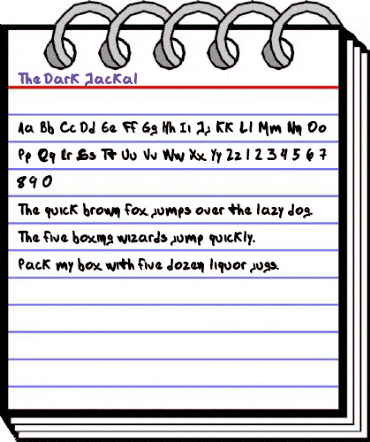 The Dark Jackal
Aa Bb Cc Dd Ee Ff Gg Hh Ii Jj Kk Ll Mm Nn Oo
Pp Qq Rr Ss Tt Uu Vv Ww Xx Yy Zz 1 2 3 4 5 6 7
8 9 0
The quick brown fox jumps over the lazy dog.
The five boxing wizards jump quickly.
Pack my box with five dozen liquor jugs.